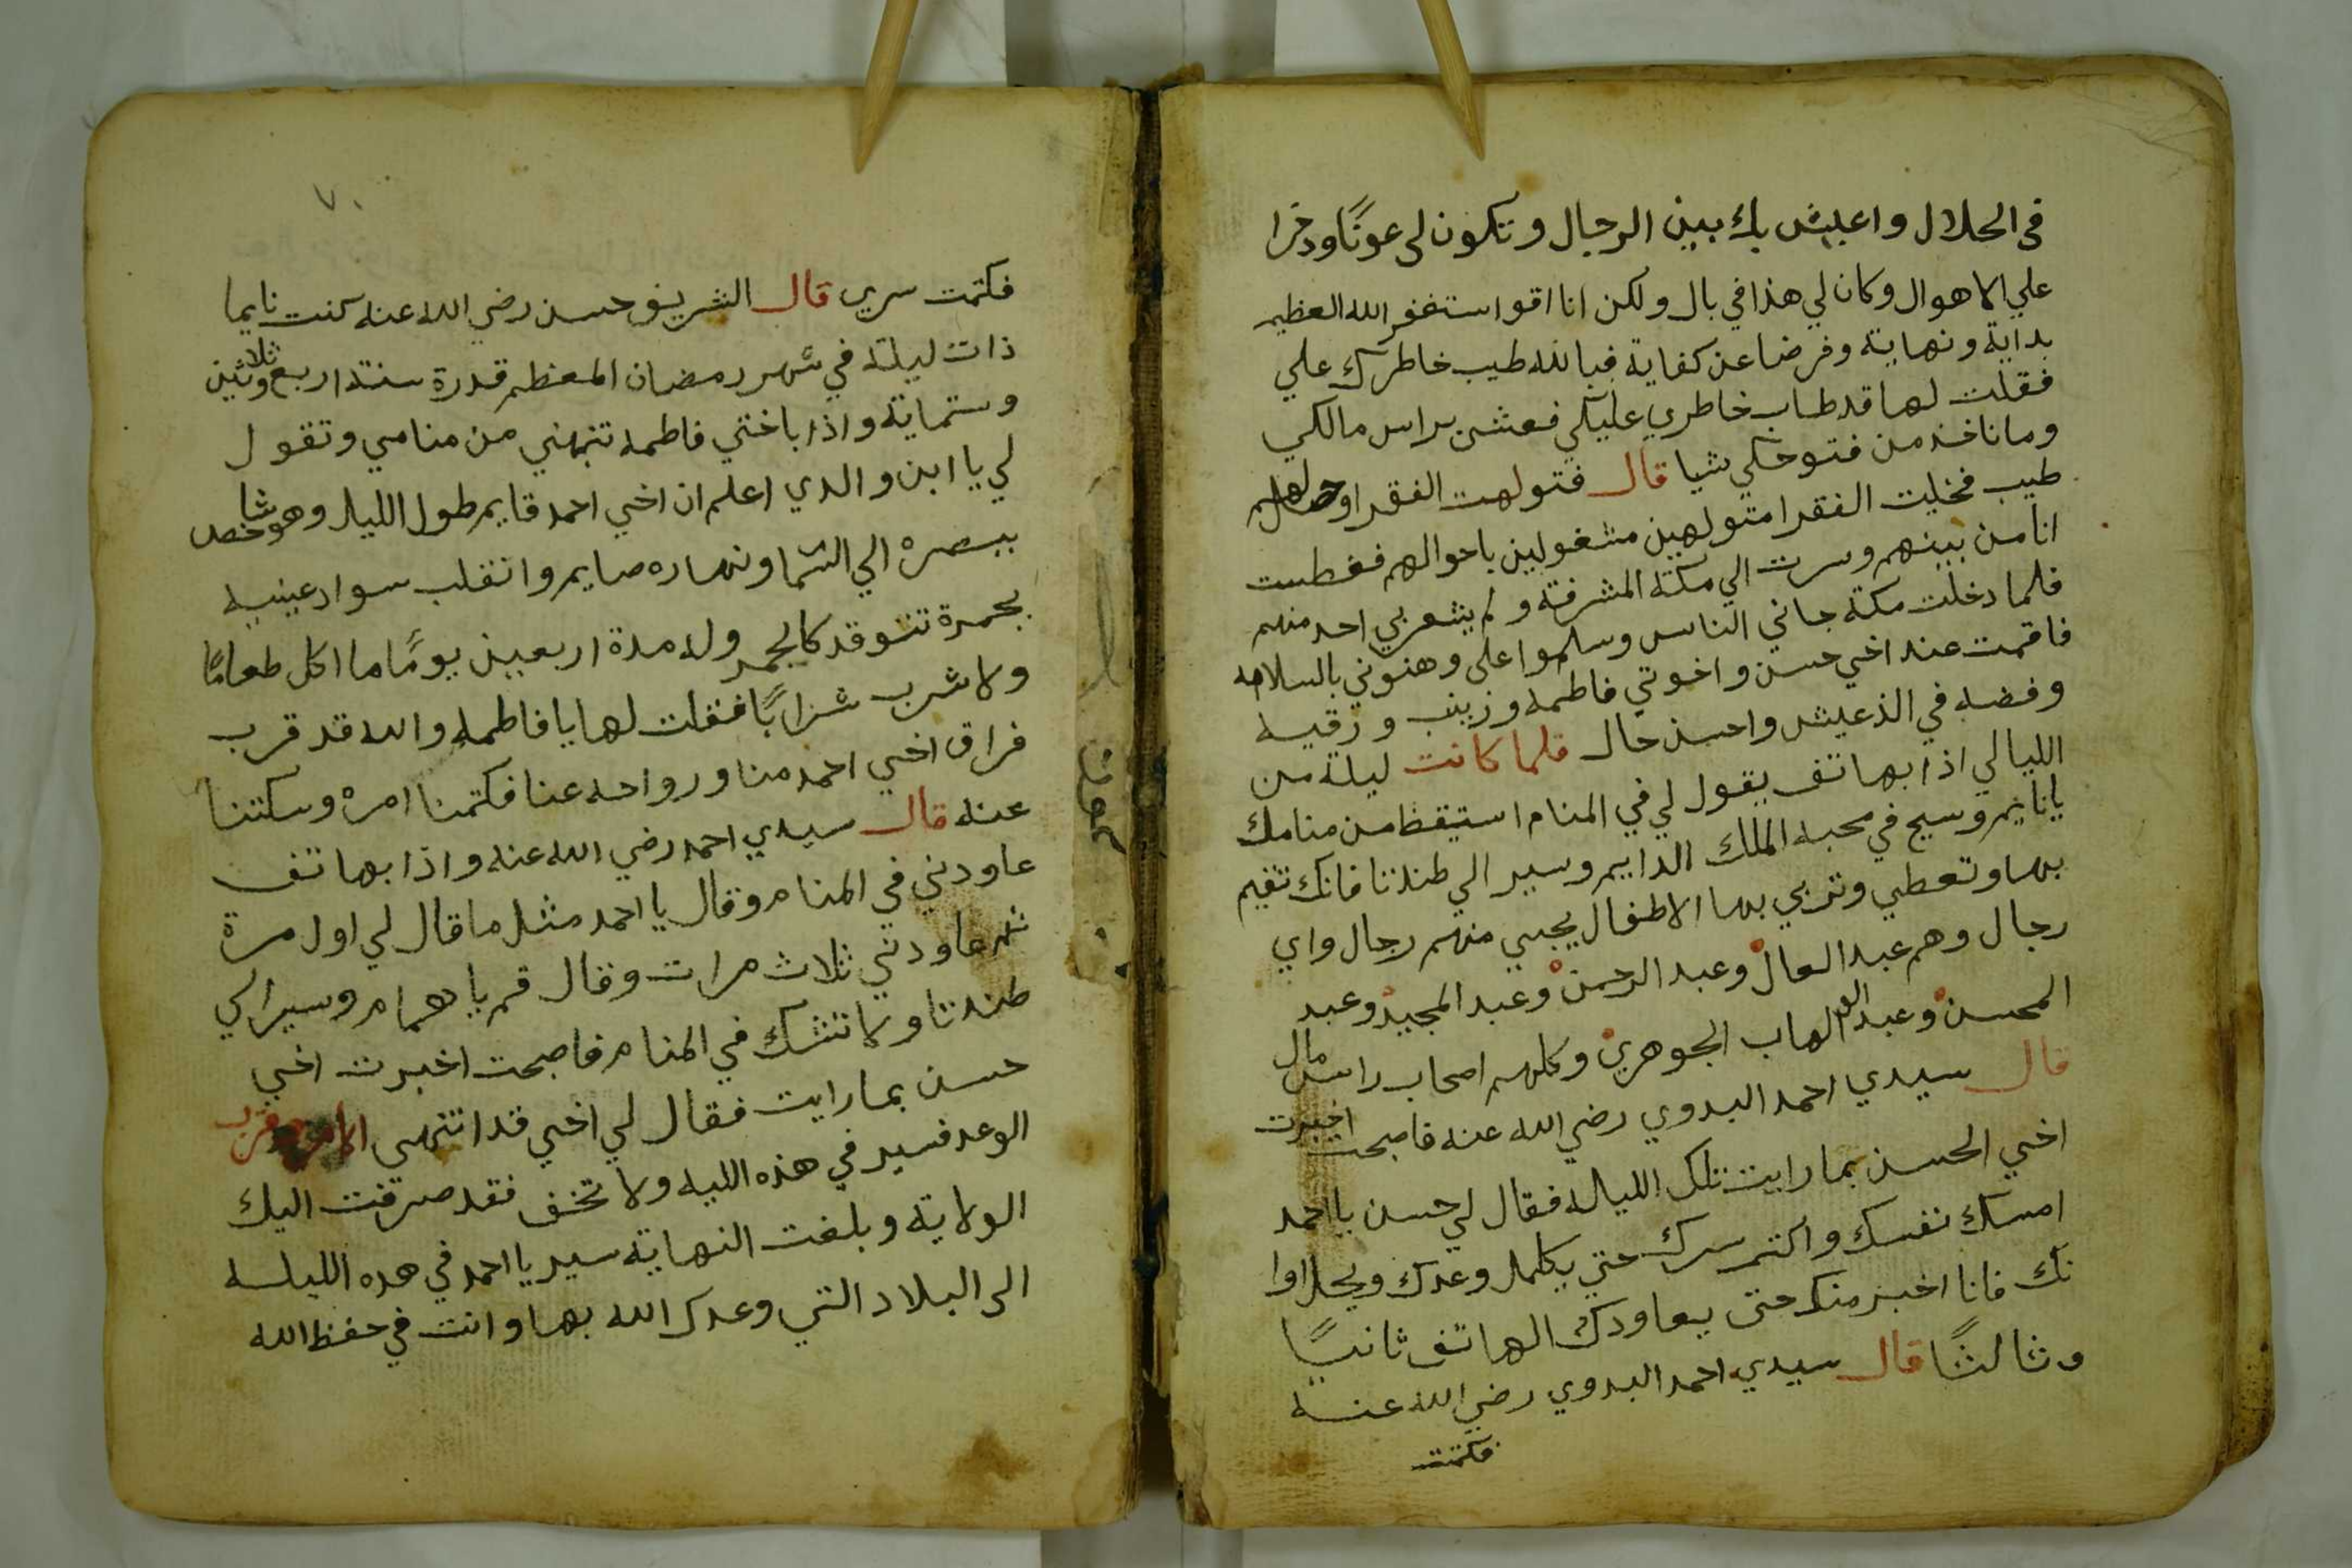 في الحلال واعيش بك بين الرجال وتكون لي عونًا وذخرا
علي الاهوال وكان لي هذا في بال ولكن انا اقوا استغفر الله العظيم
بداية ونهاية وفرضا عن كفاية فبالله طيب خاطرك علي
فقلت لها قد طاب خاطري عليكي فعشن براس مالكي
وما ناخذ من فتوحكي شيا قال فتولهت الفقرا وحصل لهم
طيب فخليت الفقرا متولهين مشغولين باحوالهم فغطست
انا من بينهم وسرت الي مكة المشرفة ولم يشعر بي احد منهم
فلما دخلت مكة جاني الناس وسلموا علي وهنوني بالسلامه
فاقمت عند اخي حسن واخوتي فاطمه وزينب ورقيه
وفضه في الذ عيش واحسن حال فلما كانت ليلة من
الليالي اذا بهاتف يقول لي في المنام استيقظ من منامك
يا نايم وسيح في محبه الملك الدايم وسير الي طندتا فانك تقيم
بها وتعطي وتربي بها الاطفال يجيي منهم رجال واي
رجال وهم عبد العال وعبد الرحمن وعبد المجيد وعبد
المحسن وعبد الوهاب الجوهري وكلهم اصحاب راس مال
قال سيدي احمد البدوي رضي الله عنه فاصبحت اخبرت
اخي الحسن بما رايت تلك اللياله فقال لي حسن يا احمد
امسك نفسك واكتم سرك حتي يكلمل وعدك ويحل اوا
نك فانا اخبر منك حتى يعاودك الهاتف ثانيًا
وثالثًا قال سيدي احمد البدوي رضي الله عنه
فكتمت
٧٠
فكتمت سري قال الشريف حسن رضي الله عنه كنت نايما
ذات ليلة في شهر رمضان المعظم قدرة سنة اربع وثلاثين
وستماية واذا باختي فاطمه تنبهني من منامي وتقول
لي يا ابن والدي اعلم ان اخي احمد قايم طول الليل وهو شاخص
ببصره الي السما ونهاره صايم وانقلب سواد عينيه
بجمرة تتوقد كالجمر وله مدة اربعين يومًا ما اكل طعامًا
ولا شرب شرابًا فقلت لها يا فاطمه والله قد قرب
فراق اخي احمد منا ورواحه عنا فكتمنا امره وسكتنا
عنه قال سيدي احمد رضي الله عنه واذا بهاتف
عاودني في المنام وقال يا احمد مثل ما قال لي اول مرة
ثم عاودني ثلاث مرات وقال قم يا همام وسير الي
طندتا ولا تشك في المنام فاصبحت اخبرت اخي
حسن بما رايت فقال لي اخي قد انتهى الامر وقرب
الوعد فسير في هذه الليه ولا تخف فقد صرفت اليك
الولاية وبلغت النهاية سير يا احمد في هده الليله
الى البلاد التي وعدك الله بها وانت في حفظ الله